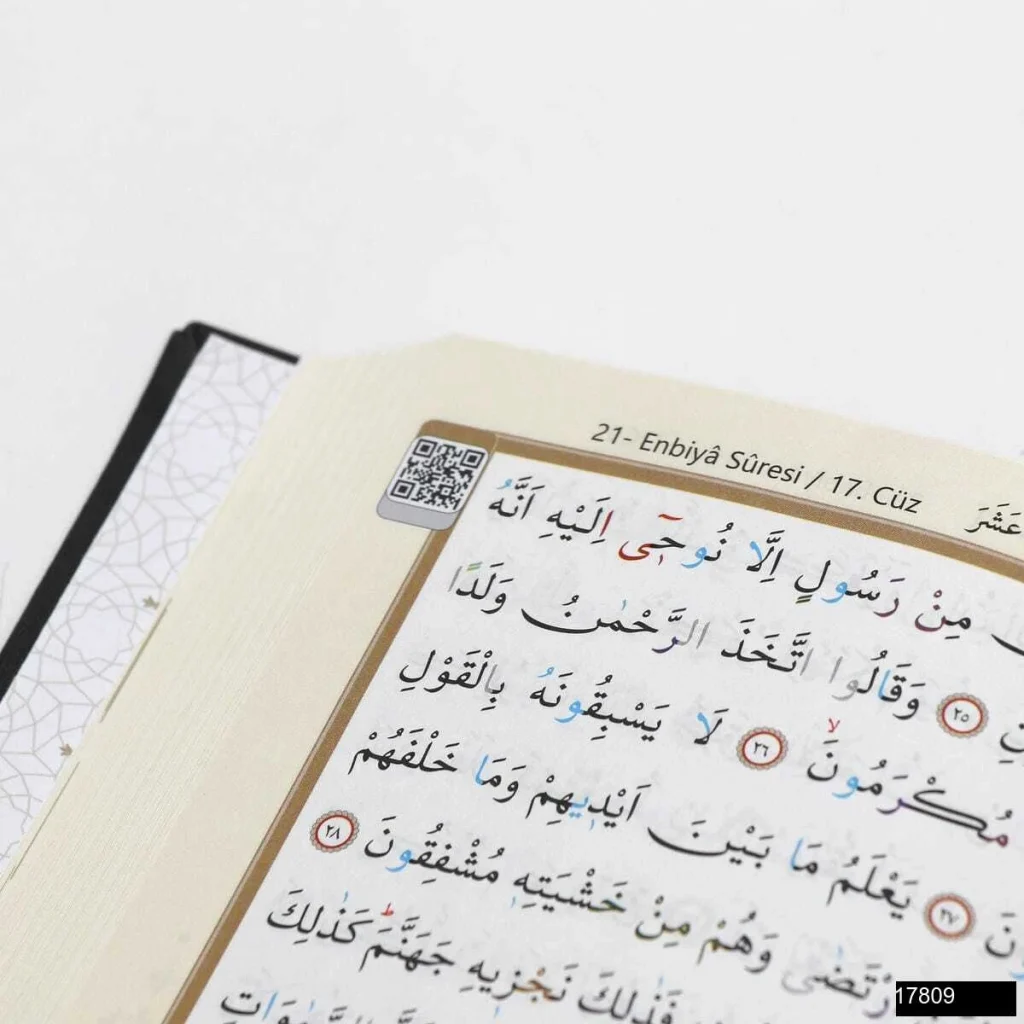 21- Enbiyâ Sûresi / 17. Cüz
عَشَرَ
مِنْ رَسُولٍ اِلَّا نُوحٓى اِلَيْهِ اَنَّهُ
٢٥ وَقَالُوا اتَّخَذَ الرَّحْمٰنُ وَلَدًا
مُكْرَمُونَۙ ٢٦ لَا يَسْبِقُونَهُ بِالْقَوْلِ
٢٧ يَعْلَمُ مَا بَيْنَ اَيْدٖيهِمْ وَمَا خَلْفَهُمْ
وَهُمْ مِنْ خَشْيَتِهٖ مُشْفِقُونَ ٢٨
فَذٰلِكَ نَجْزٖيهِ جَهَنَّمَؕ كَذٰلِكَ
17809